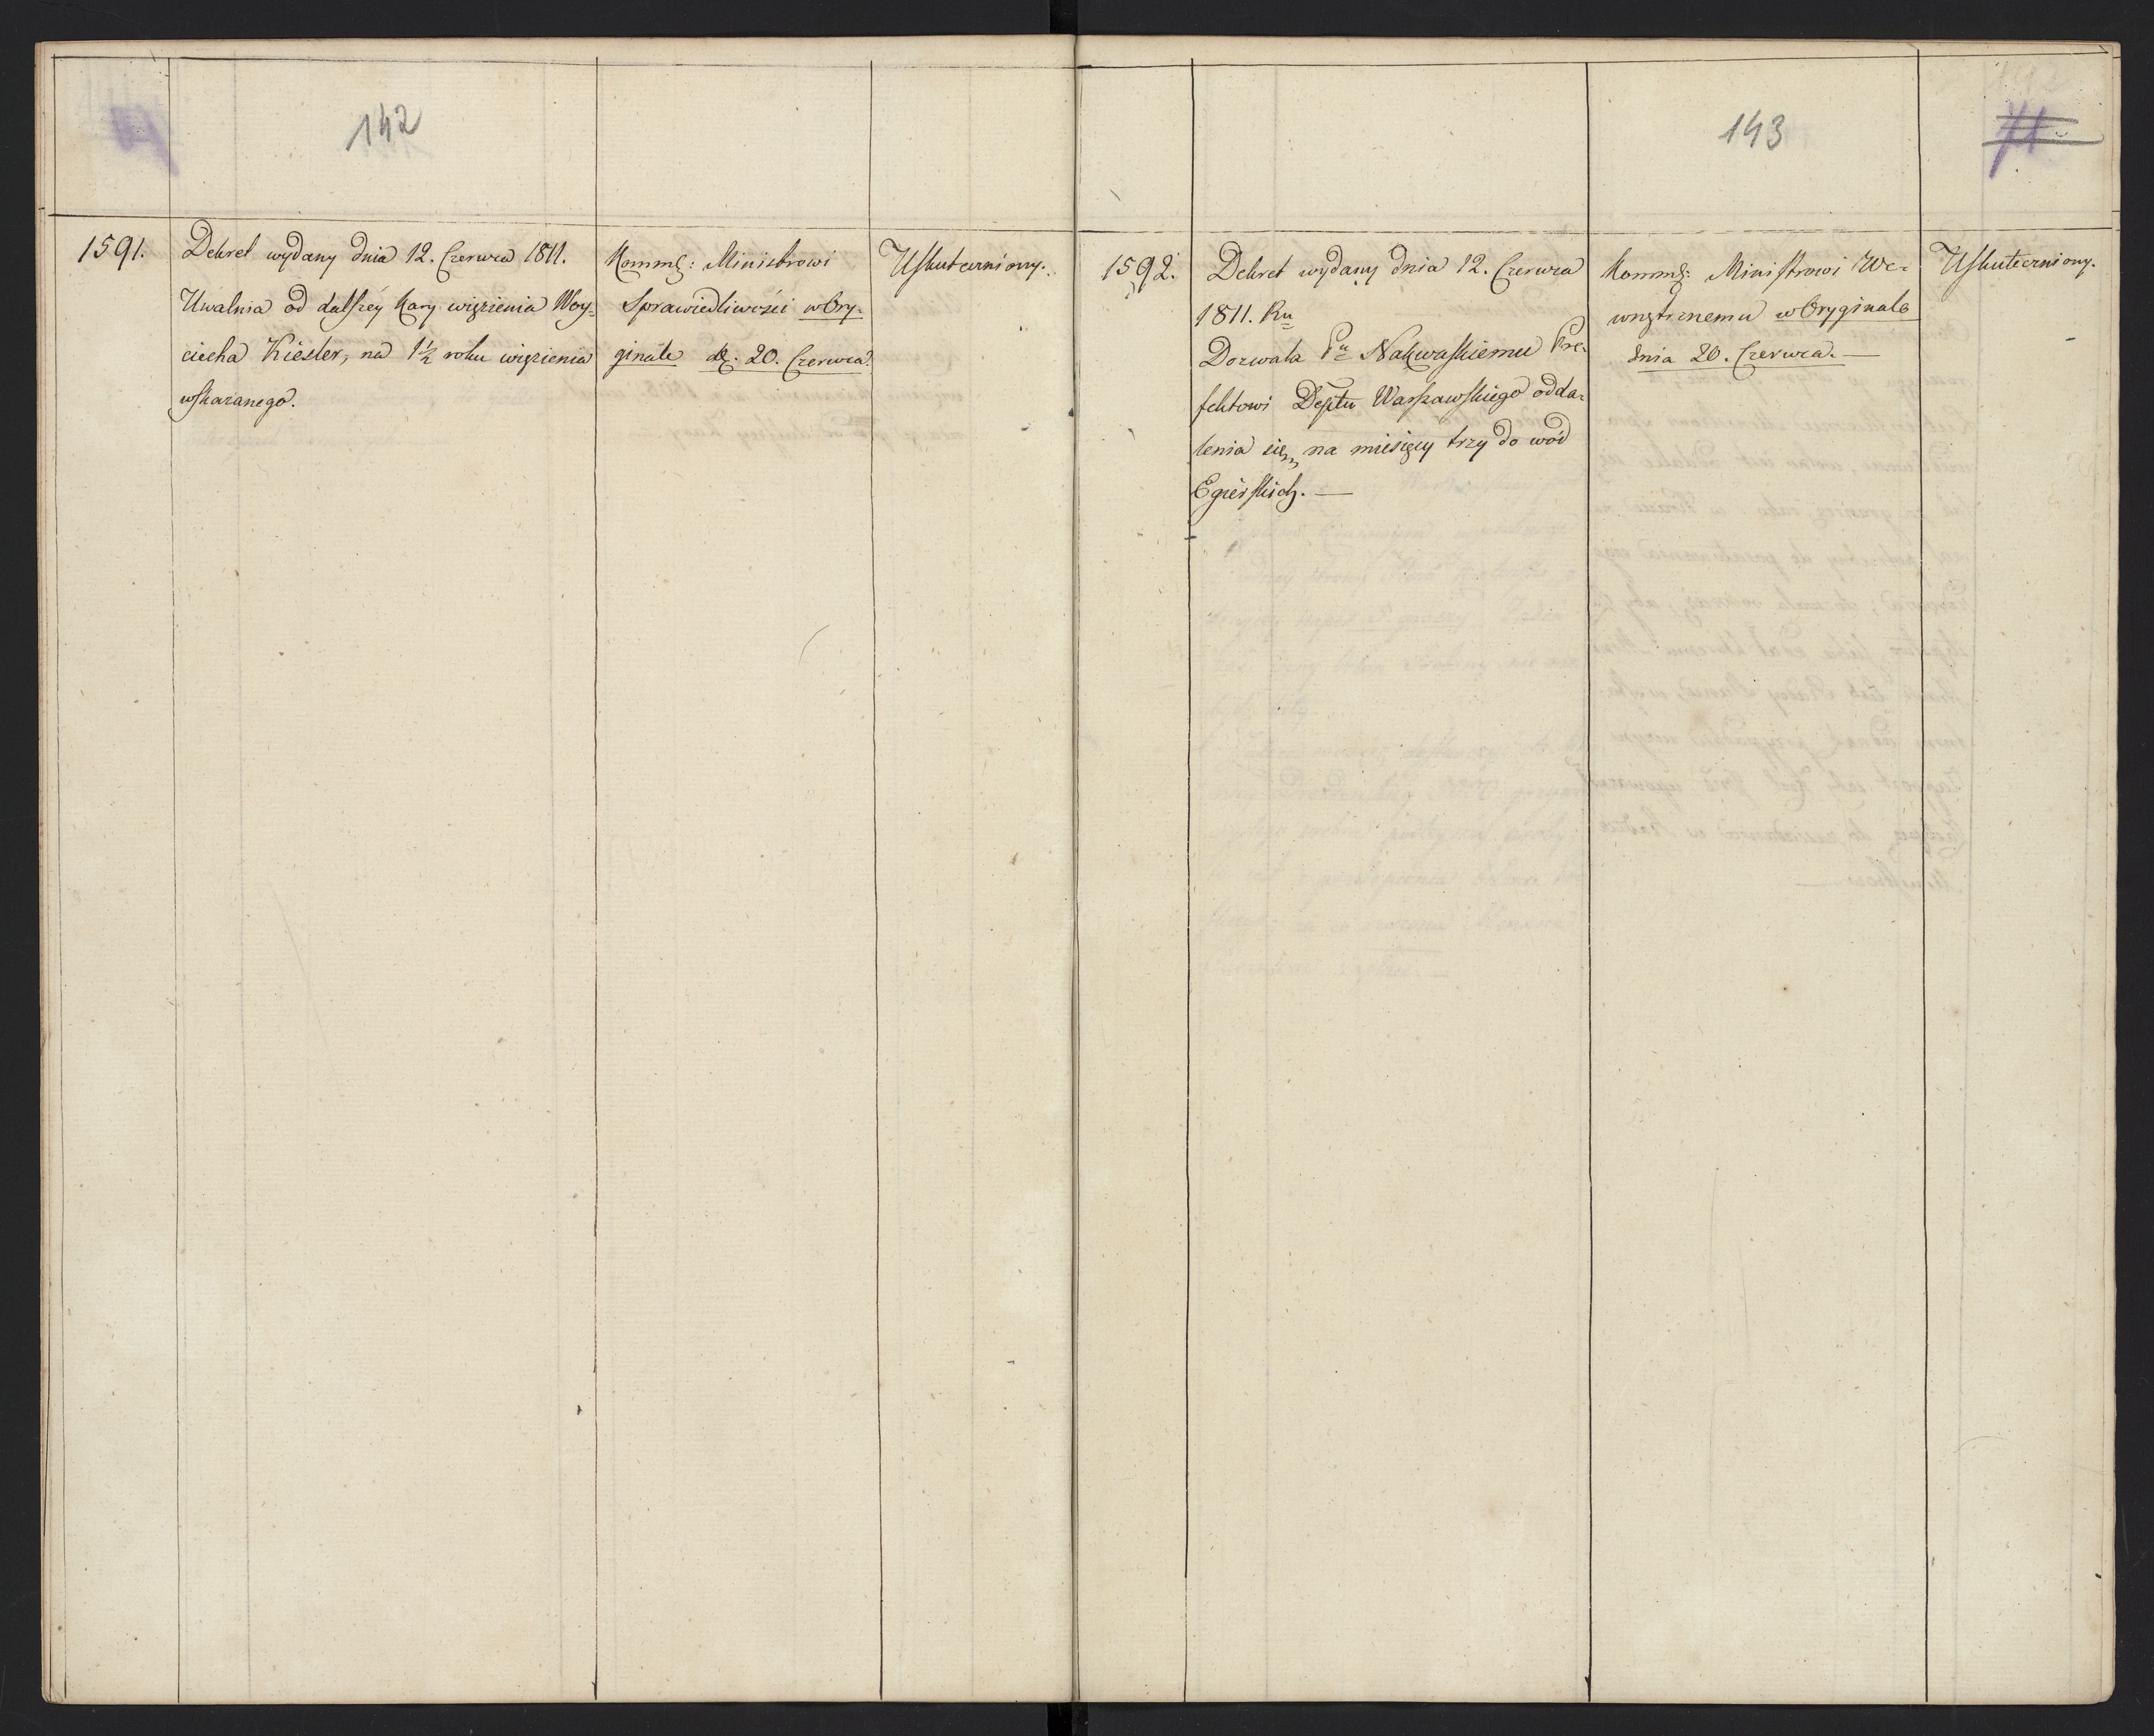 142
1591.
Dekret wydany dnia 12. Czerwca 1811.
Uwalnia od dalszéy kary więzienia Woy=
ciecha Kiesler, na 1½ roku więzienia
wskazanego.
Kommk: Ministrowi
Sprawiedliwości w Ory-
ginale d. 20. Czerwca.
Uskuteczniony.
143
71
1592.
Dekret wydany dnia 12. Czerwca
1811. Ru
Dozwala Pu Nakwaskiemu Pre-
fektowi Deptu Warszawskiego odda-
lenia się, na miesięcy trzy do wód
Egierskich. —
Kommk: Ministrowi We-
wnętrznemu w Oryginale
dnia 20. Czerwca. —
Uskuteczniony.